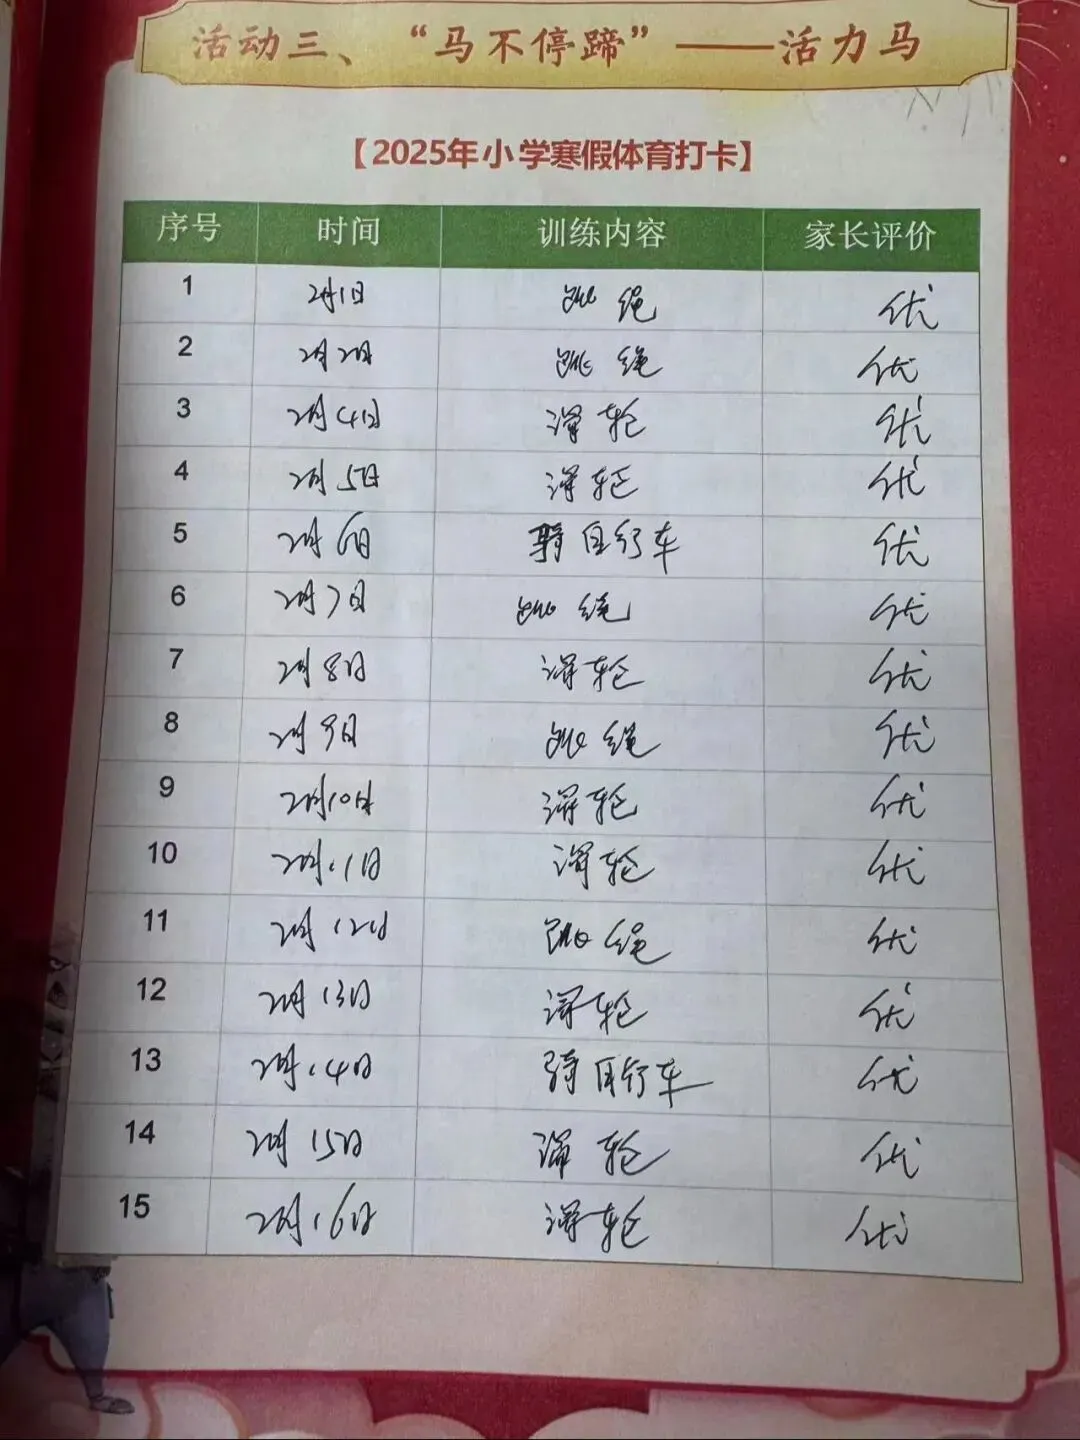 活动三、“马不停蹄”——活力马
【2025年小学寒假体育打卡】
序号 时间 训练内容 家长评价
1 2月1日 跳绳 优
2 2月2日 跳绳 优
3 2月4日 滑轮 优
4 2月5日 滑轮 优
5 2月6日 骑自行车 优
6 2月7日 跳绳 优
7 2月8日 滑轮 优
8 2月9日 跳绳 优
9 2月10日 滑轮 优
10 2月11日 滑轮 优
11 2月12日 跳绳 优
12 2月13日 滑轮 优
13 2月14日 骑自行车 优
14 2月15日 滑轮 优
15 2月16日 滑轮 优